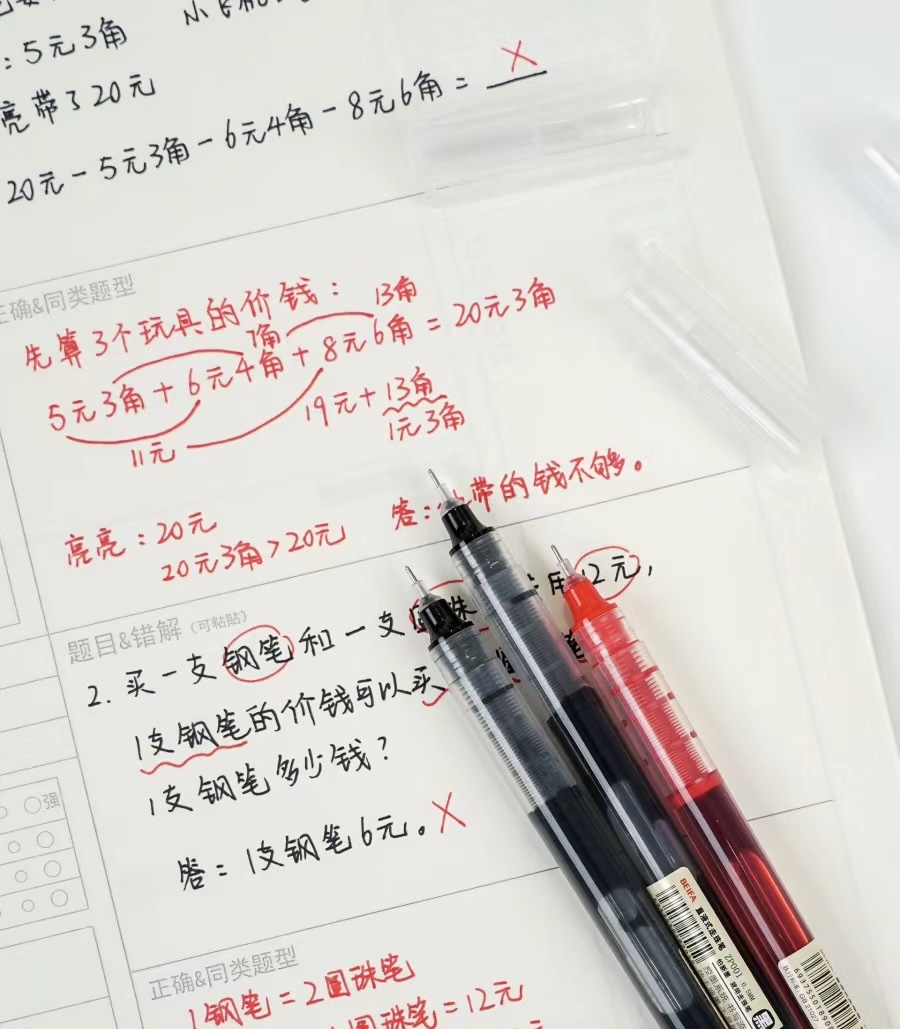 ：5元3角
亮带了20元
20元－5元3角－6元4角－8元6角＝ ×
正确&同类题型
先算3个玩具的价钱：
7角 13角
5元3角＋6元4角＋8元6角＝20元3角
11元 19元＋13角
1元3角
亮亮：20元 答：带的钱不够。
20元3角＞20元
题目&错解（可粘贴）
2. 买一支钢笔和一支 用12元，
1支钢笔的价钱可以买
1支钢笔多少钱？
答：1支钢笔6元。×
强
正确&同类题型
1钢笔＝2圆珠笔
圆珠笔＝12元
BEIFA 直液式走珠笔 ZP001 0.5MM